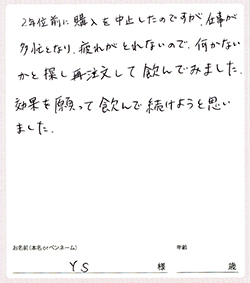 2年位前に購入を中止したのですが、仕事が
多忙となり、疲れがとれないので、何かない
かと探し再注文して飲んでみました。
効果を願って飲んで続けようと思い
ました。
お名前(本名orペンネーム)
年齢
YS 様 歳